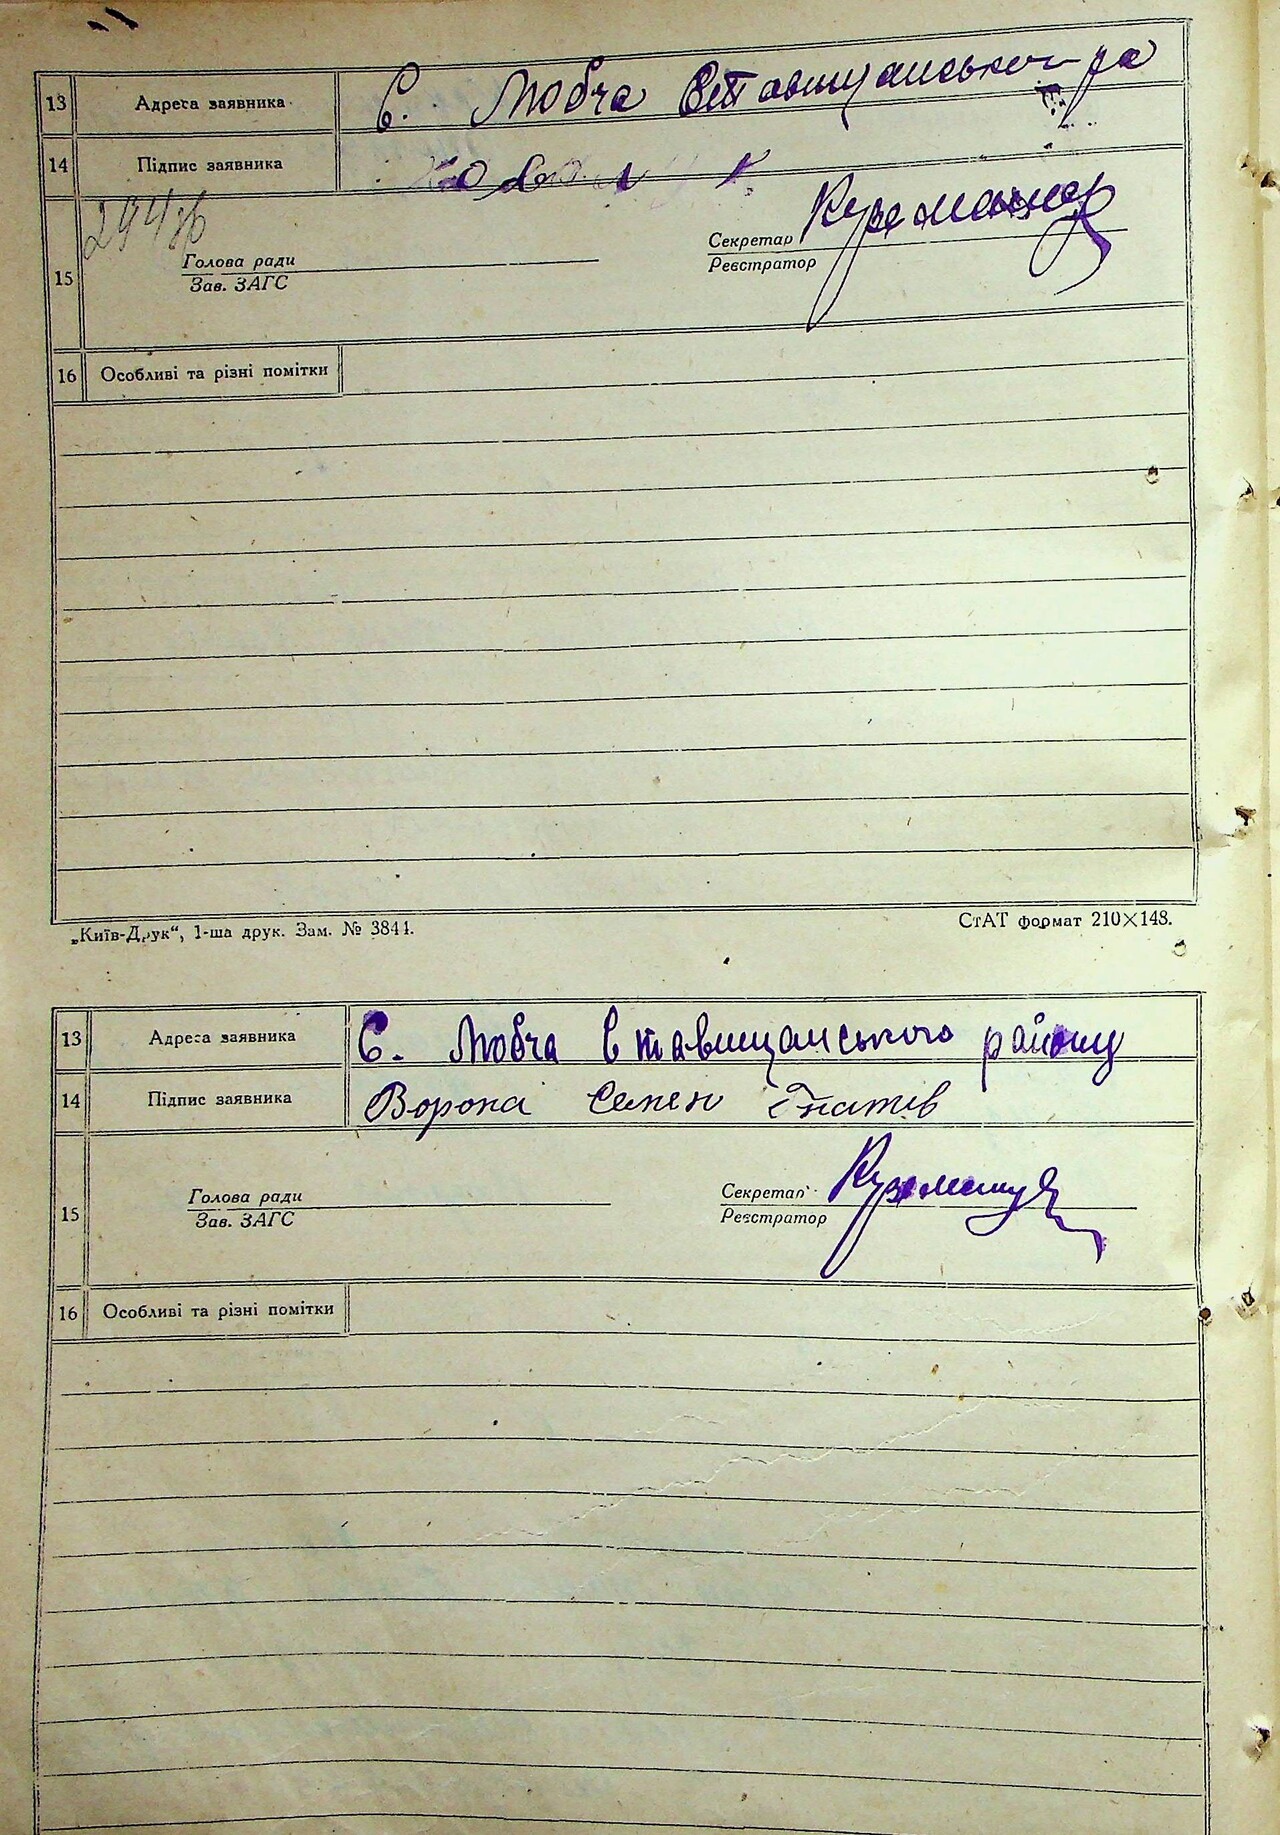 13 Адреса заявника С. Любча Ставищанського ра
14 Підпис заявника
294зв
15 Голова ради Секретар
Зав. ЗАГС Реєстратор
16 Особливі та різні помітки
„Київ-Друк“, 1-ша друк. Зам. № 3841. СтАТ формат 210×148.
13 Адреса заявника С. Любча Ставищанського району
14 Підпис заявника Ворона Семен Гнатів
15 Голова ради Секретар
Зав. ЗАГС Реєстратор
16 Особливі та різні помітки